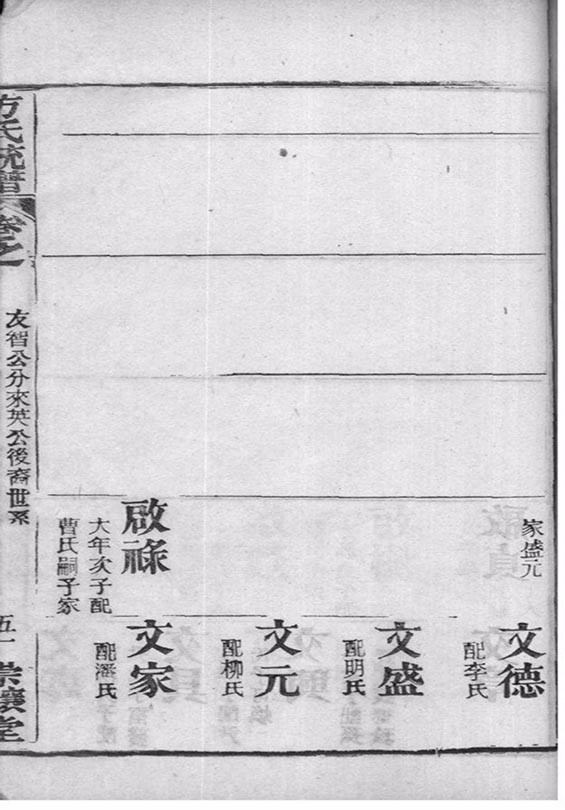 家盛元
文德
配李氏
文盛
配明氏
文元
配柳氏
啟祿
大年次子配
曹氏嗣子家
文家
配潘氏
方氏統譜
卷之
友智公分來英公後裔世系
五一
堂